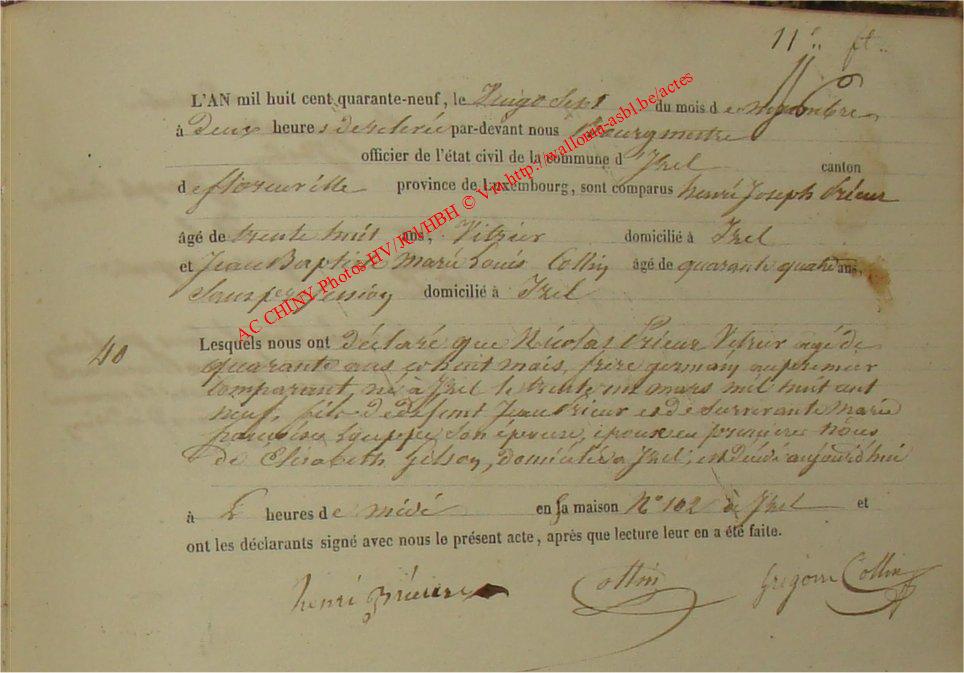 11
L'AN mil huit cent quarante-neuf, le Vingt Sept du mois de novembre
à Deux heures de relevée par-devant nous Bourgmestre
officier de l'état civil de la commune d'Izel canton
de florenville province de Luxembourg, sont comparus henri Joseph Prieur
âgé de trente huit ans, Vitrier domicilié à Izel
et Jean Baptiste Marie Louis Collin âgé de quarante quatre ans,
Sans profession domicilié à Izel
AC CHINY Photos HV/JCl/HBH © Via http://walloma-asbl.be/actes
40
Lesquels nous ont déclaré que Nicolas Prieur Vitrier agé de
quarante ans et huit mois, frère germain au premier
Comparant né à Izel le trente un mars mil huit cent
neuf, fils de defunt Jean Prieur et de Survivante Marie
françoise son épouse, époux en premières noces
de Elisabeth Gilson, domicilié à Izel, est décédé aujourd'hui
à heures de midi en sa maison N° 102 à Izel et
ont les déclarants signé avec nous le présent acte, après que lecture leur en a été faite.
henri prieure Collin Grégoire Collin